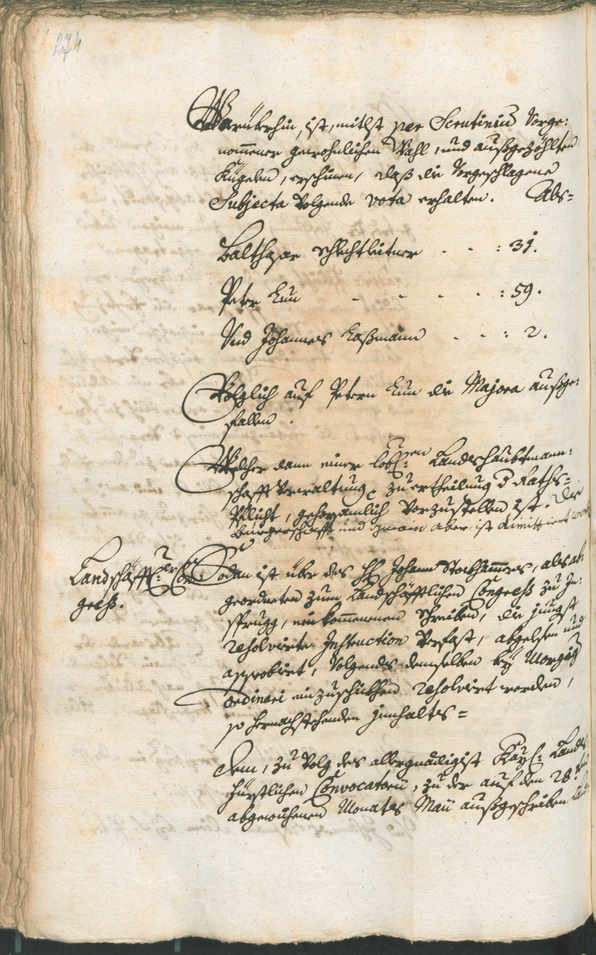 Woruberhin, ist, mitlst per Scrutiniũ vorge:
nom̃ener gewohnlichen Wahl, und außgezöhlten
Kugelen, erschinen, daß die vorgeschlagene
Subjecta volgende vota erhalten. Abs=
Balthasar Schlechtleitner . . : 31.
Peter Kun . . . . : 59.
Und Johannes Kaßmann . . : 2.
Volglich auf Petern Kun die Majora außge:
fallen.
Welcher dann einer lobl:en Landshaubtmann:
schafft Verwaltung, zu ertheilung d Raths=
Pflicht, gehorsamlich vorzustellen ist. Die
Burgerschafft und gmain aber ist dimittiert
Landschäfft:er Con:
greß.
Sodan ist über des H: Johann Stockham̃ers, als ab:
geordneten zum Landschäfftlichen Congress zu Jn:
sprugg, einkommenen schreiben, die jungst
resolvierte Instruction verfast, abgelesen und
approbirt, volgends demselben bey Morgig
Ordinari einzuschikhen resolvirt worden,
so hernachstehenden jnnhalts=
Dem, zu volg des allergnädigist Kayl: Lands
fürstlichen Convocatorii, zu der auf den 28.
abgewichenen Monats Maii außgeschriben